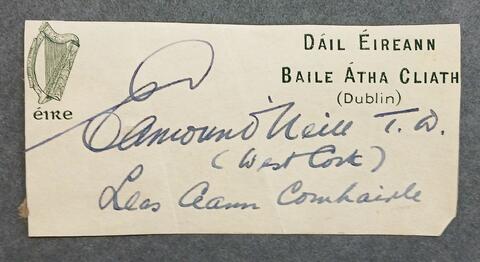 DÁIL ÉIREANN
BAILE ÁTHA CLIATH
(Dublin)
éire
Eamonn O'Neill T.D.
(West Cork)
Leas Ceann Comhairle